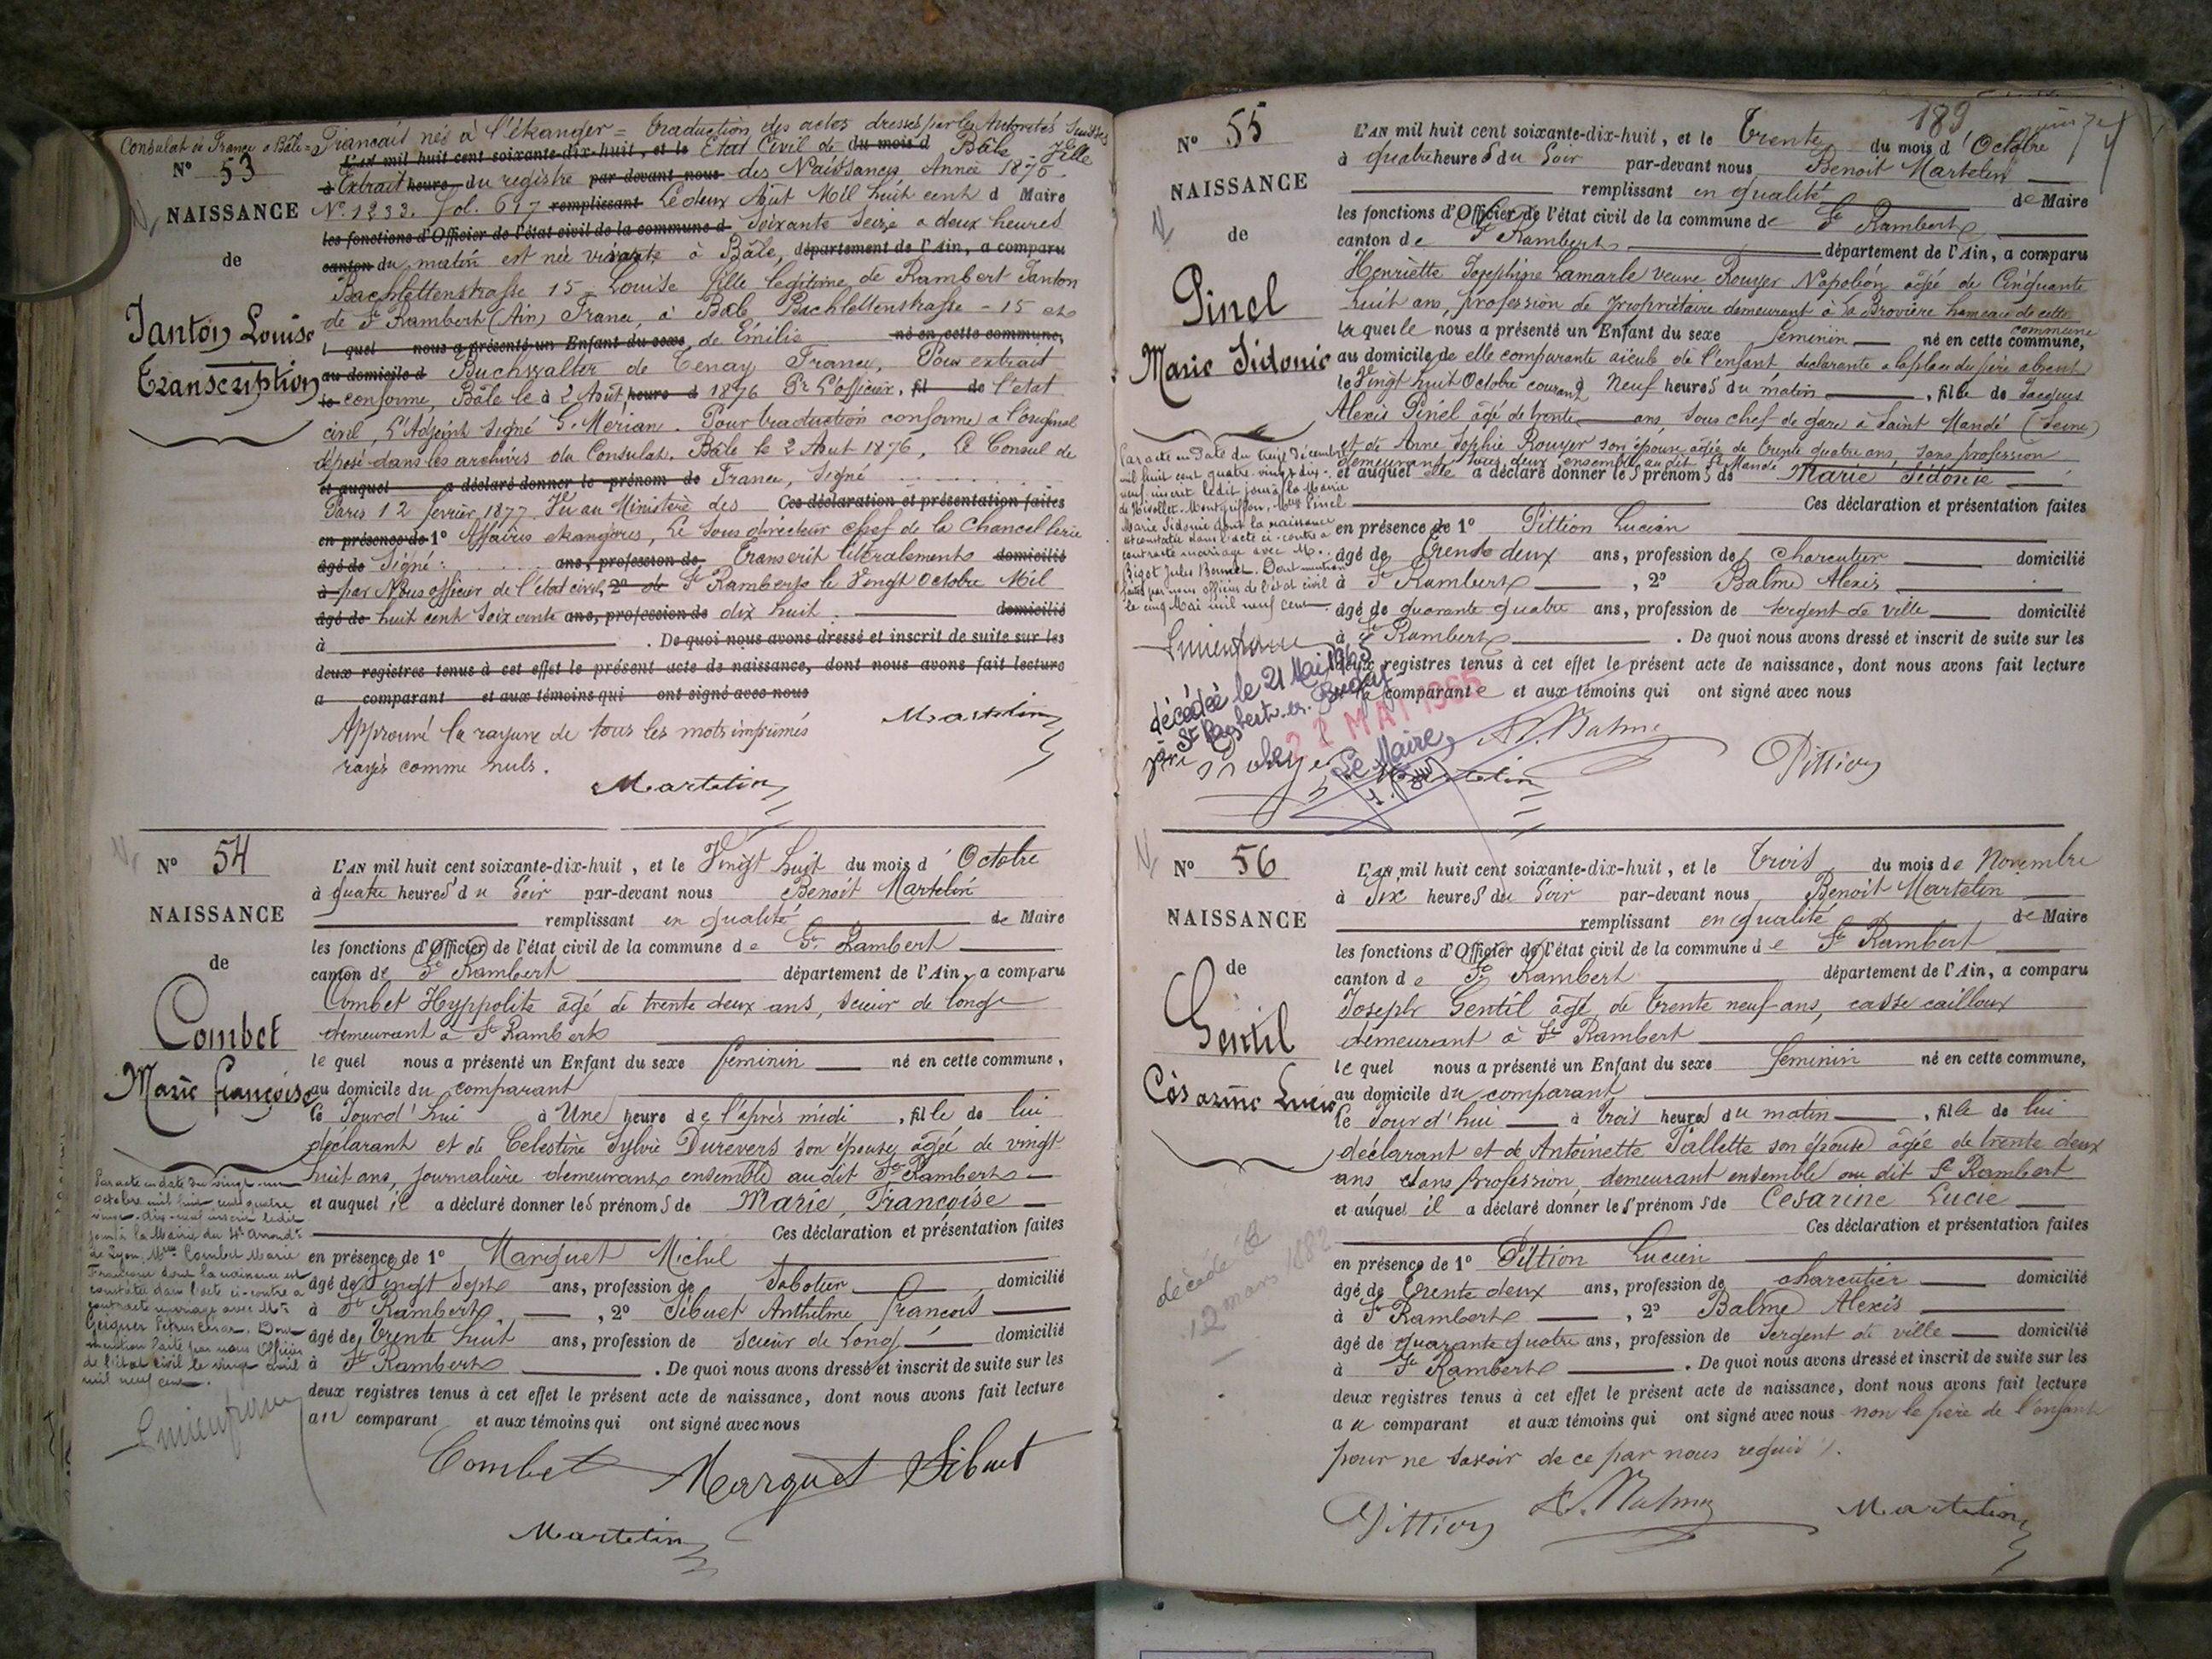 Consulat de France à Bâle = Français nés à l'étranger = traduction des actes dressés par les Autorités Suisses
N° 53
L'AN mil huit cent soixante-dix-huit, et le Etat Civil de du mois d Bâle Ville
à Extrait heure du registre par-devant nous des Naissances Année 1876.
NAISSANCE
N° 1233. Fol. 617 remplissant Le deux Août Mil huit cent d Maire
les fonctions d'Officier de l'état civil de la commune d Soixante Seize a deux heures
de
canton du matin est née vivante à Bâle, département de l'Ain, a comparu
Bachlettenstrasse 15 = Louise fille légitime de Rambert Janton
de St Rambert (Ain) France, à Bâle Bachlettenstrasse - 15 et
Janton Louise
Transcription
l quel nous a présenté un Enfant du sexe de Émilie né en cette commune,
au domicile d Buchwalter de Tenay France, Pour extrait
le conforme, Bâle le à 2 Août heure d 1876 Pr L'officier, fil de l'état
civil, L'Adjoint signé G. Merian. Pour traduction conforme a l'original
déposé dans les archives du Consulat. Bâle le 2 Aout 1876. Le Consul de
et auquel a déclaré donner le prénom de France, Signé
Paris 12 février 1877. Vu au Ministère des Ces déclaration et présentation faites
en présence de 1° Affaires étrangères, Le Sous directeur chef de la Chancellerie
âgé de Signé : ans, profession de Transcrit littéralement domicilié
à par Nous officier de l'état civil, 2° de St Rambert le Vingt Octobre Mil
âgé de huit cent soixante ans, profession de dix huit. domicilié
à . De quoi nous avons dressé et inscrit de suite sur les
deux registres tenus à cet effet le présent acte de naissance, dont nous avons fait lecture
a comparant et aux témoins qui ont signé avec nous
Approuvé la rayure de tous les mots imprimés
rayés comme nuls.
Martelin
Martelin
N° 54
NAISSANCE
de
Combet
Marie Françoise
L'AN mil huit cent soixante-dix-huit, et le Vingt huit du mois d'Octobre
à quatre heures du Soir par-devant nous Benoît Martelin
remplissant en qualité de Maire
les fonctions d'Officier de l'état civil de la commune de St Rambert
canton de St Rambert département de l'Ain, a comparu
Combet Hyppolite âgé de trente deux ans, Scieur de long
demeurant à St Rambert
le quel nous a présenté un Enfant du sexe féminin né en cette commune,
au domicile du comparant
le Jourd'hui à Une heure de l'après midi, fille de lui
déclarant et de Celestine Sylvie Durevers son épouse, âgée de vingt
huit ans, journalière demeurant ensemble au dit St Rambert
et auquel il a déclaré donner les prénoms de Marie, Françoise
Ces déclaration et présentation faites
en présence de 1° Marquet Michel
âgé de Vingt Sept ans, profession de Sabotier domicilié
à St Rambert, 2° Sibuet Anthelme François
âgé de Trente huit ans, profession de Scieur de Long domicilié
à St Rambert. De quoi nous avons dressé et inscrit de suite sur les
deux registres tenus à cet effet le présent acte de naissance, dont nous avons fait lecture
au comparant et aux témoins qui ont signé avec nous
Par acte en date du vingt-un
octobre mil huit cent quatre
vingt-dix-neuf inscrit ledit
jour à la Mairie du 4e Arrondt
de Lyon, Melle Combet Marie
Françoise dont la naissance est
constatée dans l'acte ci-contre a
contracté mariage avec Mr
mention faite par nous Officier
de l'état civil le vingt avril
mil neuf cent.
Combet Marquet Sibuet
Martelin
189
N° 55
NAISSANCE
de
Pinel
Marie Sidonie
L'AN mil huit cent soixante-dix-huit, et le Trente du mois d'Octobre
à quatre heures du Soir par-devant nous Benoît Martelin
remplissant en qualité de Maire
les fonctions d'Officier de l'état civil de la commune de St Rambert
canton de St Rambert département de l'Ain, a comparu
Henriette Josephine Lamarle veuve Rouyer Napoléon âgée de Cinquante
huit ans, profession de propriétaire demeurant à la Brovière hameau de cette
commune
laquelle nous a présenté un Enfant du sexe féminin né en cette commune,
au domicile de elle comparante aieule de l'enfant, déclarante a la place du père absent
le Vingt huit Octobre courant à Neuf heures du matin, fille de Jacques
Alexis Pinel âgé de trente ans, Sous chef de gare à Saint Mandé (Seine)
et de Anne Sophie Rouyer son épouse, âgée de trente quatre ans, sans profession
demeurant tous deux ensemble au dit St Mandé
et auquel elle a déclaré donner les prénoms de Marie Sidonie
Ces déclaration et présentation faites
en présence de 1° Pittion Lucien
âgé de Trente deux ans, profession de charcutier domicilié
à St Rambert, 2° Balme Alexis
âgé de quarante quatre ans, profession de sergent de ville domicilié
à St Rambert. De quoi nous avons dressé et inscrit de suite sur les
deux registres tenus à cet effet le présent acte de naissance, dont nous avons fait lecture
a la comparante et aux témoins qui ont signé avec nous
Par acte en date du treize décembre
mil huit cent quatre-vingt-dix-
neuf inscrit ledit jour à la Mairie
Melle Pinel
Marie Sidonie dont la naissance
est constatée dans l'acte ci-contre a
contracté mariage avec Mr
Bigot Jules Benoît. Dont mention
faite par nous officier de l'état civil
le cinq Mai mil neuf cent.
décédée le 21 Mai 1965
St Rambert-en-Bugey
le 22 MAI 1965
Le Maire
A. Balme
Pittion
Martelin
N° 56
NAISSANCE
de
Gentil
Césarine Lucie
L'AN mil huit cent soixante-dix-huit, et le Trois du mois de Novembre
à Six heures du Soir par-devant nous Benoît Martelin
remplissant en qualité de Maire
les fonctions d'Officier de l'état civil de la commune de St Rambert
canton de St Rambert département de l'Ain, a comparu
Joseph Gentil âgé de trente neuf ans, casse cailloux
demeurant à St Rambert
le quel nous a présenté un Enfant du sexe féminin né en cette commune,
au domicile du comparant
le Jour d'hui à trois heures du matin, fille de lui
déclarant et de Antoinette Tallette son épouse âgée de trente deux
ans sans profession, demeurant ensemble au dit St Rambert
et auquel il a déclaré donner les prénoms de Césarine Lucie
Ces déclaration et présentation faites
en présence de 1° Pittion Lucien
âgé de Trente deux ans, profession de charcutier domicilié
à St Rambert, 2° Balme Alexis
âgé de quarante quatre ans, profession de Sergent de ville domicilié
à St Rambert. De quoi nous avons dressé et inscrit de suite sur les
deux registres tenus à cet effet le présent acte de naissance, dont nous avons fait lecture
au comparant et aux témoins qui ont signé avec nous non le père de l'enfant
pour ne savoir de ce par nous requis.
décédée le
12 mars 1882
Pittion A. Balme Martelin